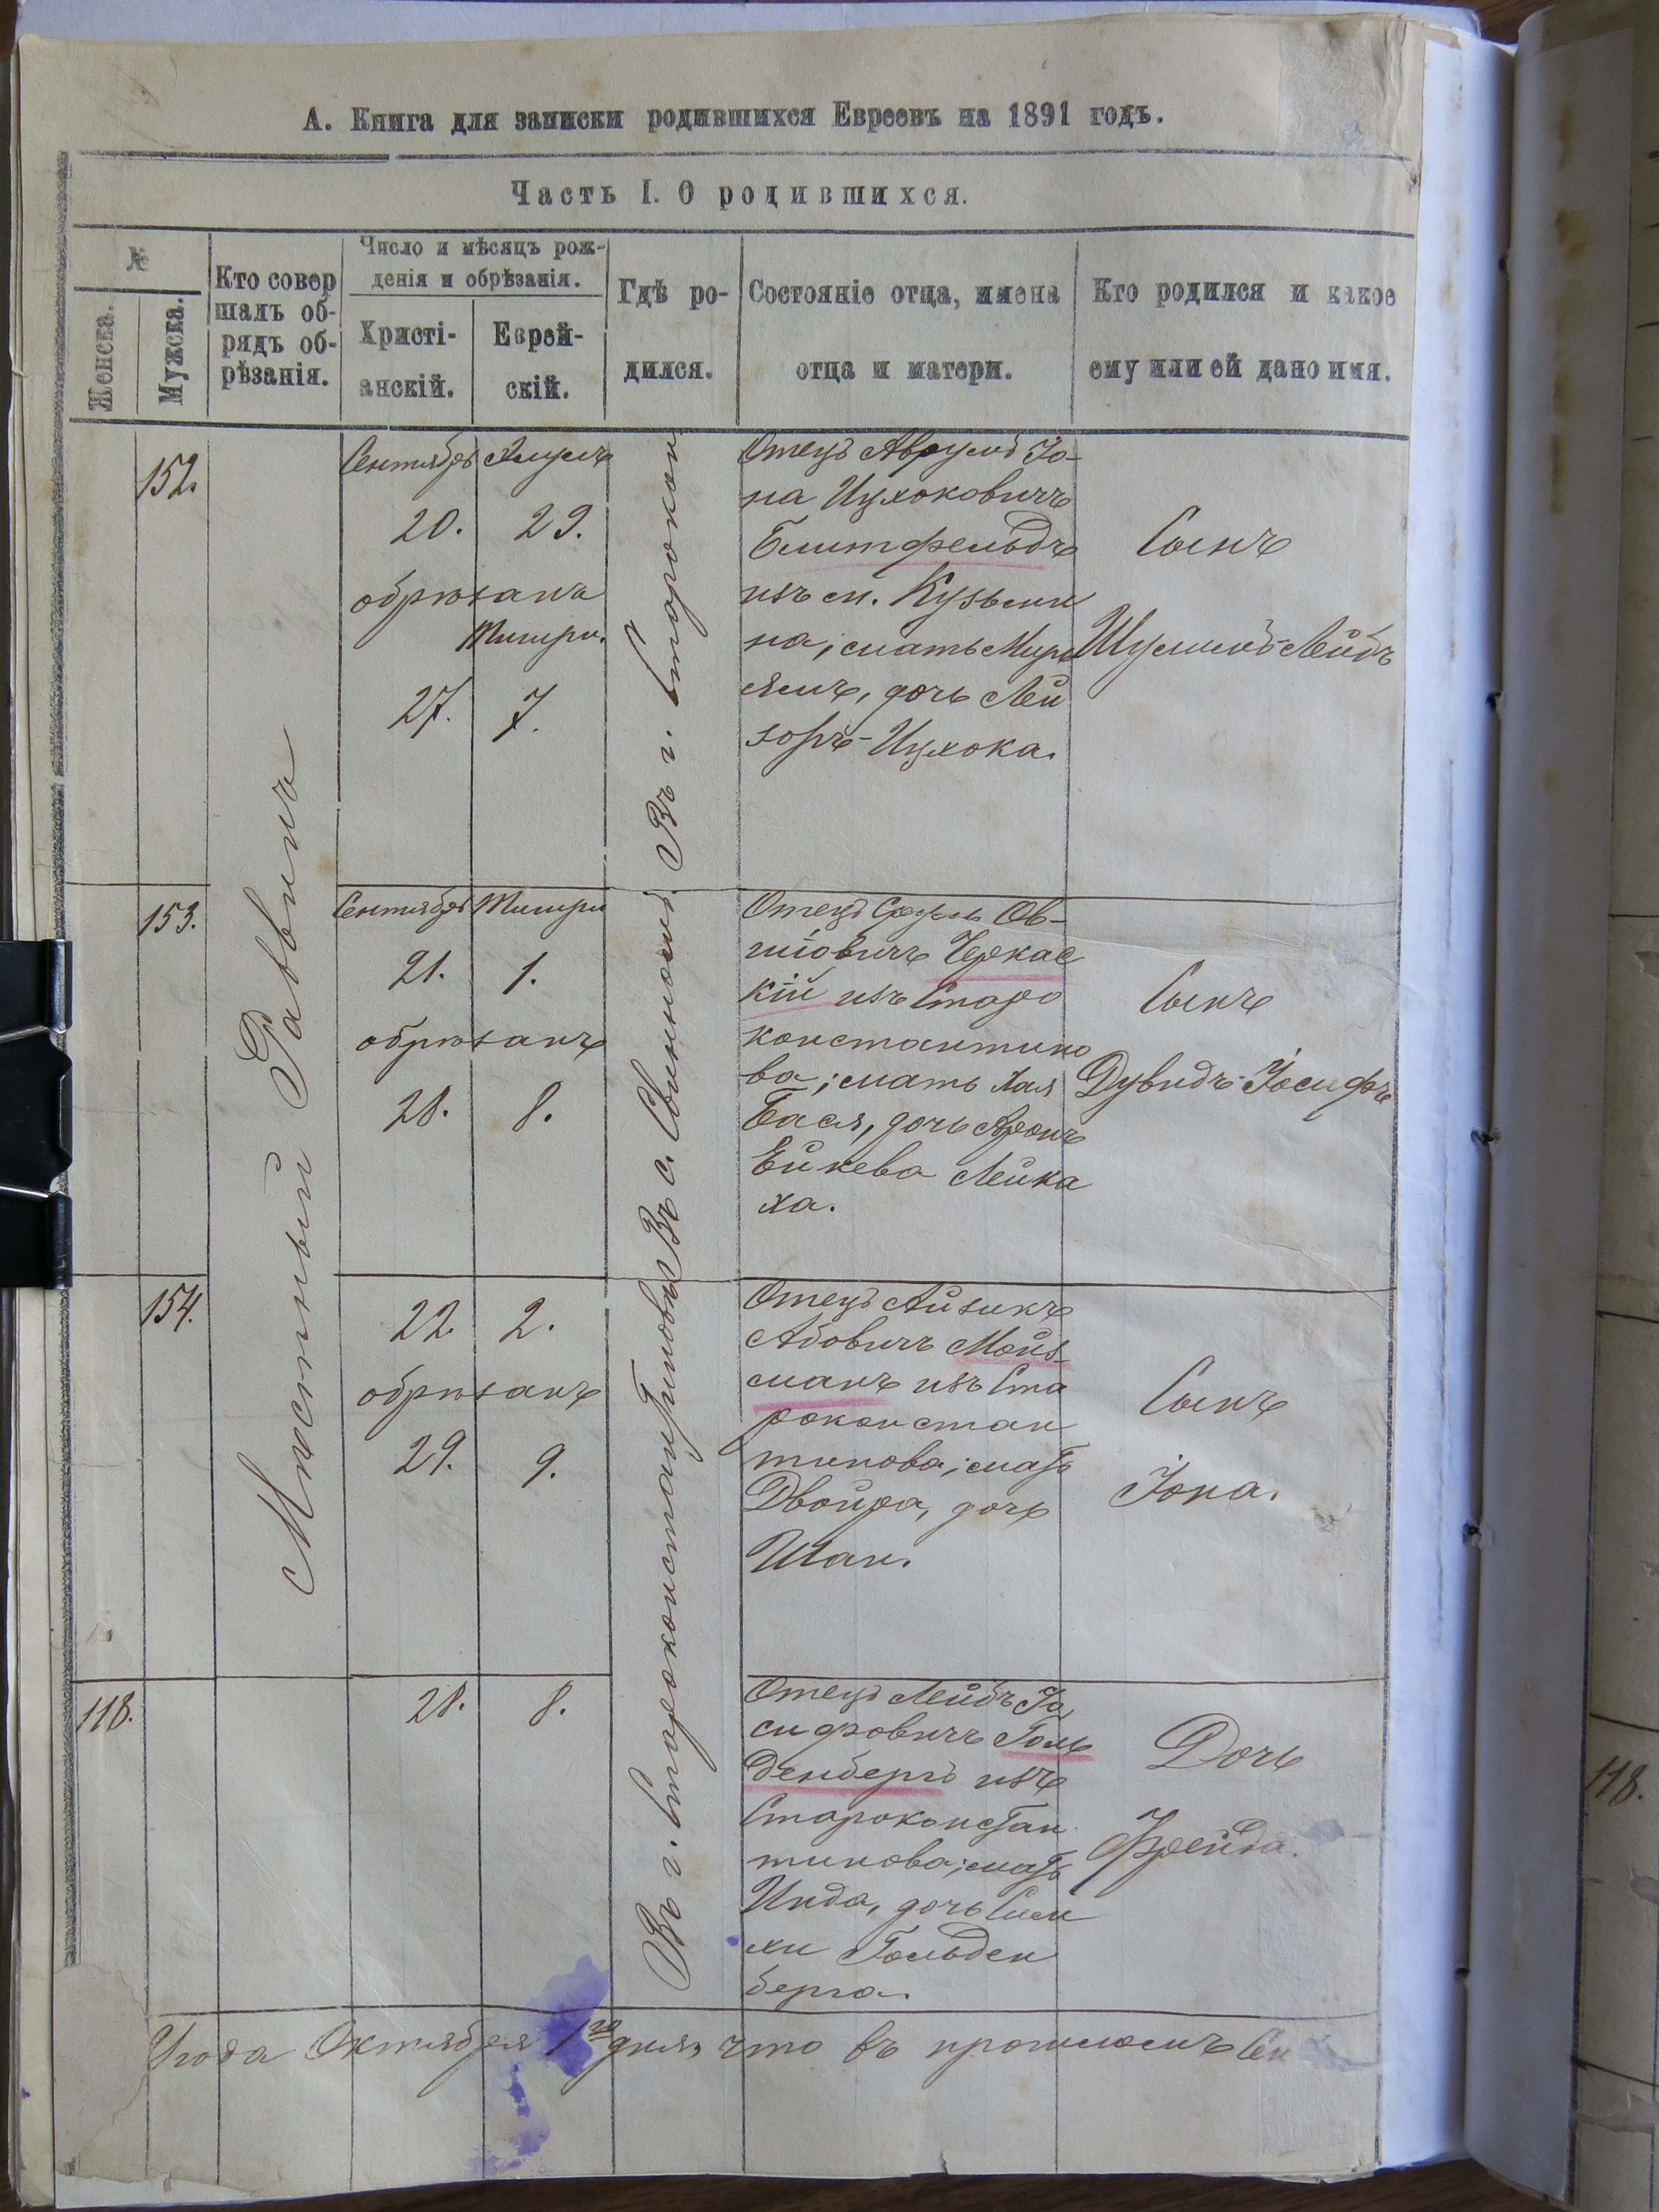 А. Книга для записки родившихся Евреевъ на 1891 годъ.
Часть I. О родившихся.
№
Женска.
Мужска.
Кто совер
шалъ об-
рядъ об-
рѣзанія.
Число и мѣсяцъ рож-
денія и обрѣзанія.
Христі-
анскій.
Еврей-
скій.
Гдѣ ро-
дился.
Состояніе отца, имена
отца и матери.
Кто родился и какое
ему или ей дано имя.
Мѣстный Раввинъ
152.
Сентябрь Элулъ
20. 29.
обрѣзанъ
Тишри.
27. 7.
Въ г. Староком
Отецъ Аврумъ Іо-
на Ицхоковичъ
Блитфельдъ
изъ м. Кузьми
на; мать Мирь
ямъ, дочь Лей
зоръ-Ицхока.
Сынъ
Шулимъ-Лейбъ
153.
Сентябрь Тишри
21. 1.
обрѣзанъ
28. 8.
Въ с.
Отецъ Сруль Ов-
шіовичъ Черкас
кій изъ Старо
константино
ва; мать Хая
Бася, дочь Аронъ
Ейкева Лейка
ха.
Сынъ
Дувидъ-Іосифъ
154.
22. 2.
обрѣзанъ
29. 9.
Въ г. Староконстантиновѣ
Отецъ Айзикъ
Абовичъ Мойз-
манъ изъ Ста
роконстан
тинова; мать
Двойра, дочь
Шаи.
Сынъ
Іона.
118.
28. 8.
Отецъ Лейбъ Іо
сифовичъ Голь
денбергъ изъ
Староконстан
тинова; мать
Инда, дочь Сим
хи Гольден
берга.
Дочь
Фрейда.
года Октября 1го дня, что въ прошломъ Сен